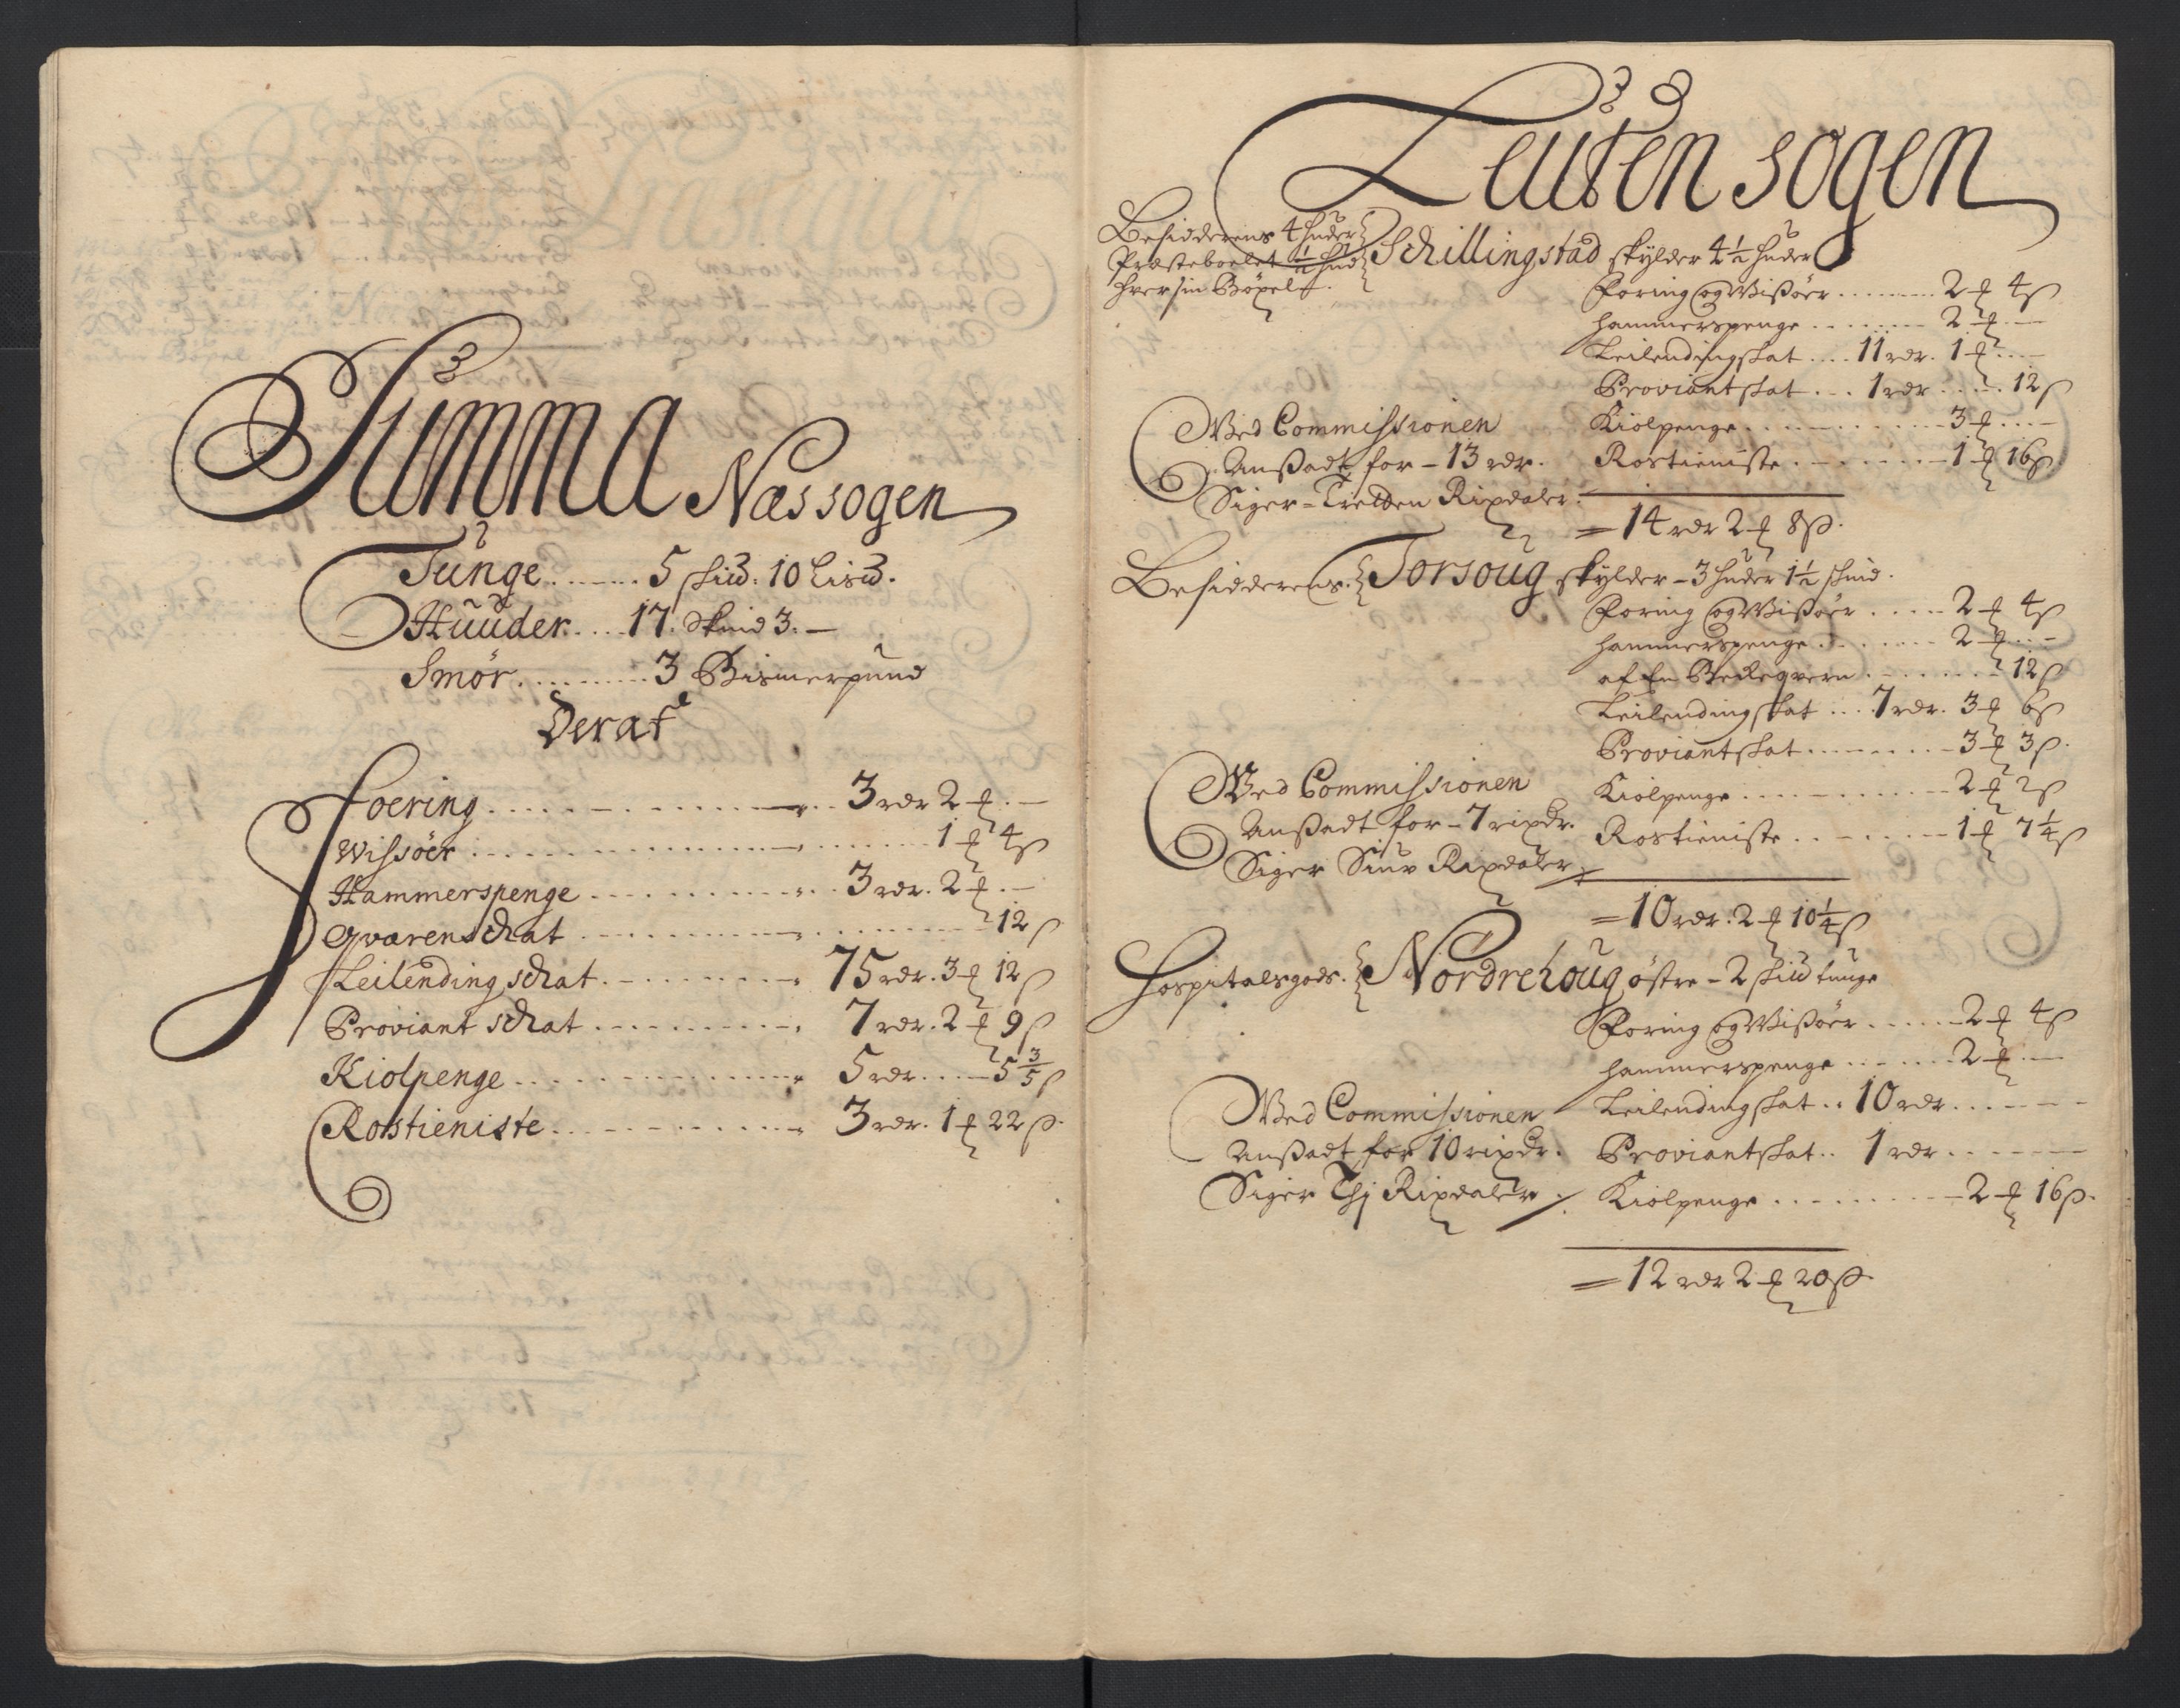 Summa Næs sogen
Tunge . . . . . 5 skiw: 10 Lisw.
Huuder . . . . 17. Skind 3. —
Smör . . . . . . . . . . 3 Bismerpund
Deraf
Foering . . . . . . . . . 3 rdr 2 ₰ . —
Wissöer . . . . . . . . . 1 ₰ 4 ß
Hammerspenge . . . . . . . 3 rdr. 2 ₰ . —
Qvarenschat . . . . . . . . . 12 ß
Leilending schat . . . . . . . 75 rdr. 3 ₰ 12 ß
Proviant schat . . . . . . . . 7 rdr. 2 ₰ 9 ß
Kiolpenge . . . . . . . . . 5 rdr. . . . — 5 3/5 ß
Rostieniste . . . . . . . . . 3 rdr. 1 ₰ 22 ß.
Leuten sogen
Besidderens 4 huder
Præsteboelet ½ hud
hver sin Böxel.
Schillingstad skylder 4½ huder
Foring og Wisöer . . . . . . 2 ₰ 4 ß
hammerspenge . . . . . . . 2 ₰ . —
Leilendingskat . . . . 11 rdr. 1 ₰ . . —
Proviantskat . . . 1 rdr . . . . . 12 ß
Kiolpenge . . . . . . . . . 3 ₰ . . . —
Rostieniste . . . . . . . . 1 ₰ 16 ß.
Wed Commissionen
Ansadt for – 13 rdr.
Siger – Tretten Rixdaler.
= 14 rdr 2 ₰ 8 ß.
Besidderens. Torsoug skylder – 3 huder 1½ skind.
Foring og Wisöer . . . . . 2 ₰ 4 ß
hammerspenge . . . . . . . 2 ₰ . . –
af En Beckeqvern . . . . . . . 12 ß
Leilendingskat . . . . 7 rdr. 3 ₰ 6 ß
Proviantskat . . . . . . . . 3 ₰ 3 ß.
Kiolpenge . . . . . . . . . 2 ₰ 2 ß
Rostieniste . . . . . . . . 1 ₰ 7¼ ß
Wed Commissionen
Ansadt for – 7 rixdr.
Siger Siuv Rixdaler
= 10 rdr. 2 ₰ 10¼ ß
Hospitalsgods. Nordrehoug östre – 2 skiw tunge
Foring og Wisöer . . . . . 2 ₰ 4 ß
hammerspenge . . . . . . . 2 ₰ . —
Leilendingskat . . 10 rdr. . . . . .
Proviantskat . . 1 rdr . . . . . . .
Kiolpenge . . . . . . . . . 2 ₰ 16 ß.
Wed Commissionen
Ansadt for 10 rixdr.
Siger Thj Rixdaler.
= 12 rdr 2 ₰ 20 ß.